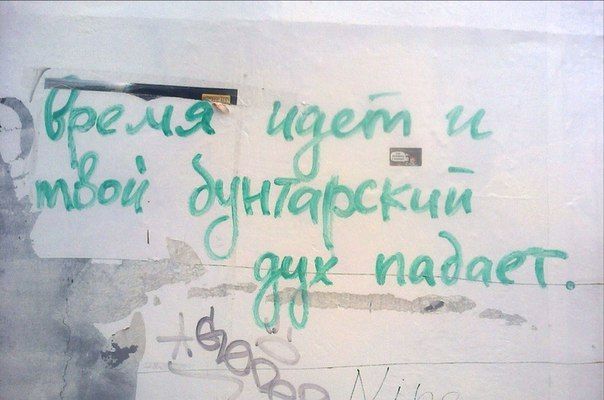 время идет и
твой бунтарский
дух падает.